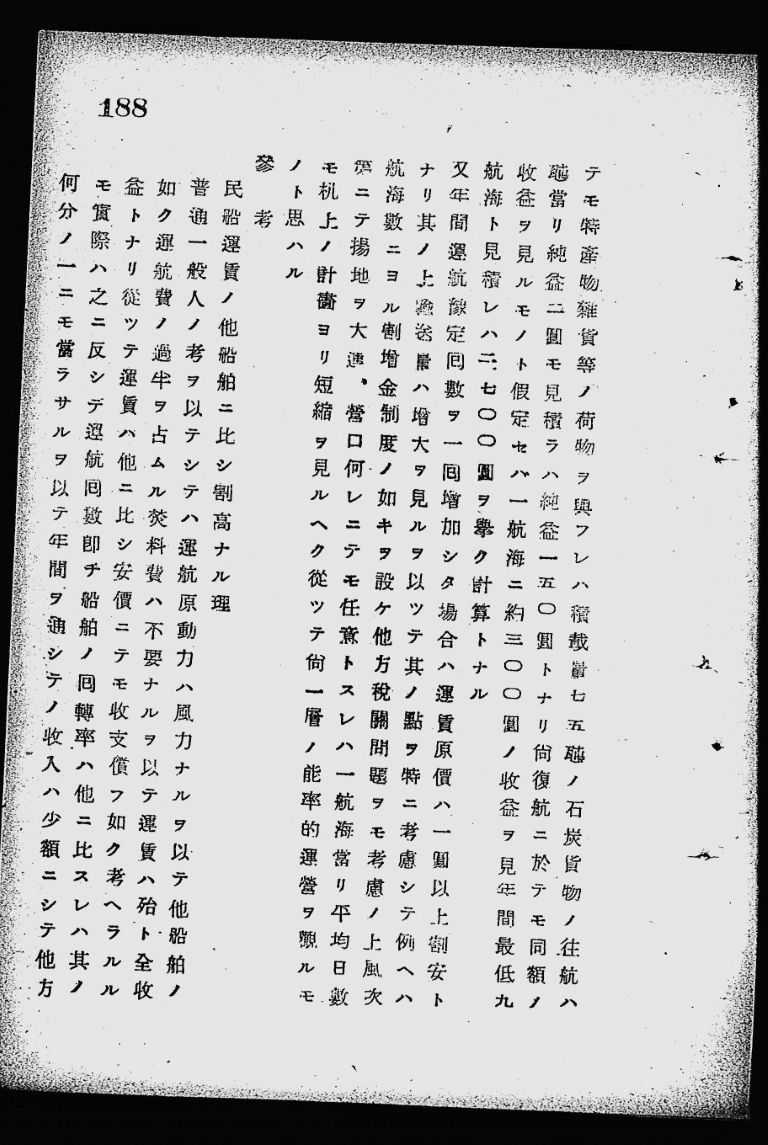 188
テモ特產物雜貨等ノ荷物ヲ與フレハ積載量七五瓲ノ石炭貨物ノ往航ハ
瓲當リ純益二圓モ見積ラハ純益一五〇圓トナリ尙復航ニ於テモ同額ノ
收益ヲ見ルモノト假定セハ一航海ニ約三〇〇圓ノ收益ヲ見年間最低九
航海ト見積レハ二、七〇〇圓ヲ擧ク計算トナル
又年間運航豫定囘數ヲ一囘增加シタ場合ハ運賃原價ハ一圓以上割安ト
ナリ其ノ上輸送量ハ增大ヲ見ルヲ以ツテ其ノ點ヲ特ニ考慮シテ例ヘハ
航海數ニヨル割增金制度ノ如キヲ設ケ他方稅關問題ヲモ考慮ノ上風次
第ニテ揚地ヲ大連、營口何レニテモ任意トスレハ一航海當リ平均日數
モ机上ノ計算ヨリ短縮ヲ見ルヘク從ツテ尙一層ノ能率的運營ヲ見ルモ
ノト思ハル
參考
民船運賃ノ他船舶ニ比シ割高ナル理
普通一般人ノ考ヲ以テシテハ運航原動力ハ風力ナルヲ以テ他船舶ノ
如ク運航費ノ過半ヲ占ムル焚料費ハ不要ナルヲ以テ運賃ハ殆ト全收
益トナリ從ツテ運賃ハ他ニ比シ安價ニテモ收支償フ如ク考ヘラルル
モ實際ハ之ニ反シテ運航囘數卽チ船舶ノ囘轉率ハ他ニ比スレハ其ノ
何分ノ一ニモ當ラサルヲ以テ年間ヲ通シテノ收入ハ少額ニシテ他方